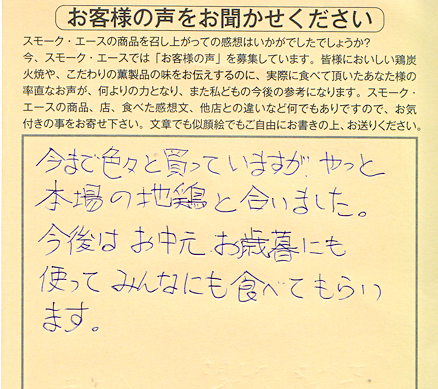 お客様の声をお聞かせください
スモーク・エースの商品を召し上がっての感想はいかがでしたでしょうか?
今、スモーク・エースでは「お客様の声」を募集しています。皆様においしい鶏炭
火焼や、こだわりの薫製品の味をお伝えするのに、実際に食べて頂いたあなた様の
率直なお声が、何よりの力となり、また私どもの今後の参考になります。スモーク・
エースの商品、店、食べた感想文、他店との違いなど何でもありですので、お気
付きの事をお寄せ下さい。文章でも似顔絵でもご自由にお書きの上、お送りください。
今まで色々と買っていますが、やっと
本場の地鶏と合いました。
今後は お中元、お歳暮にも
使って みんなにも食べてもらい
ます。